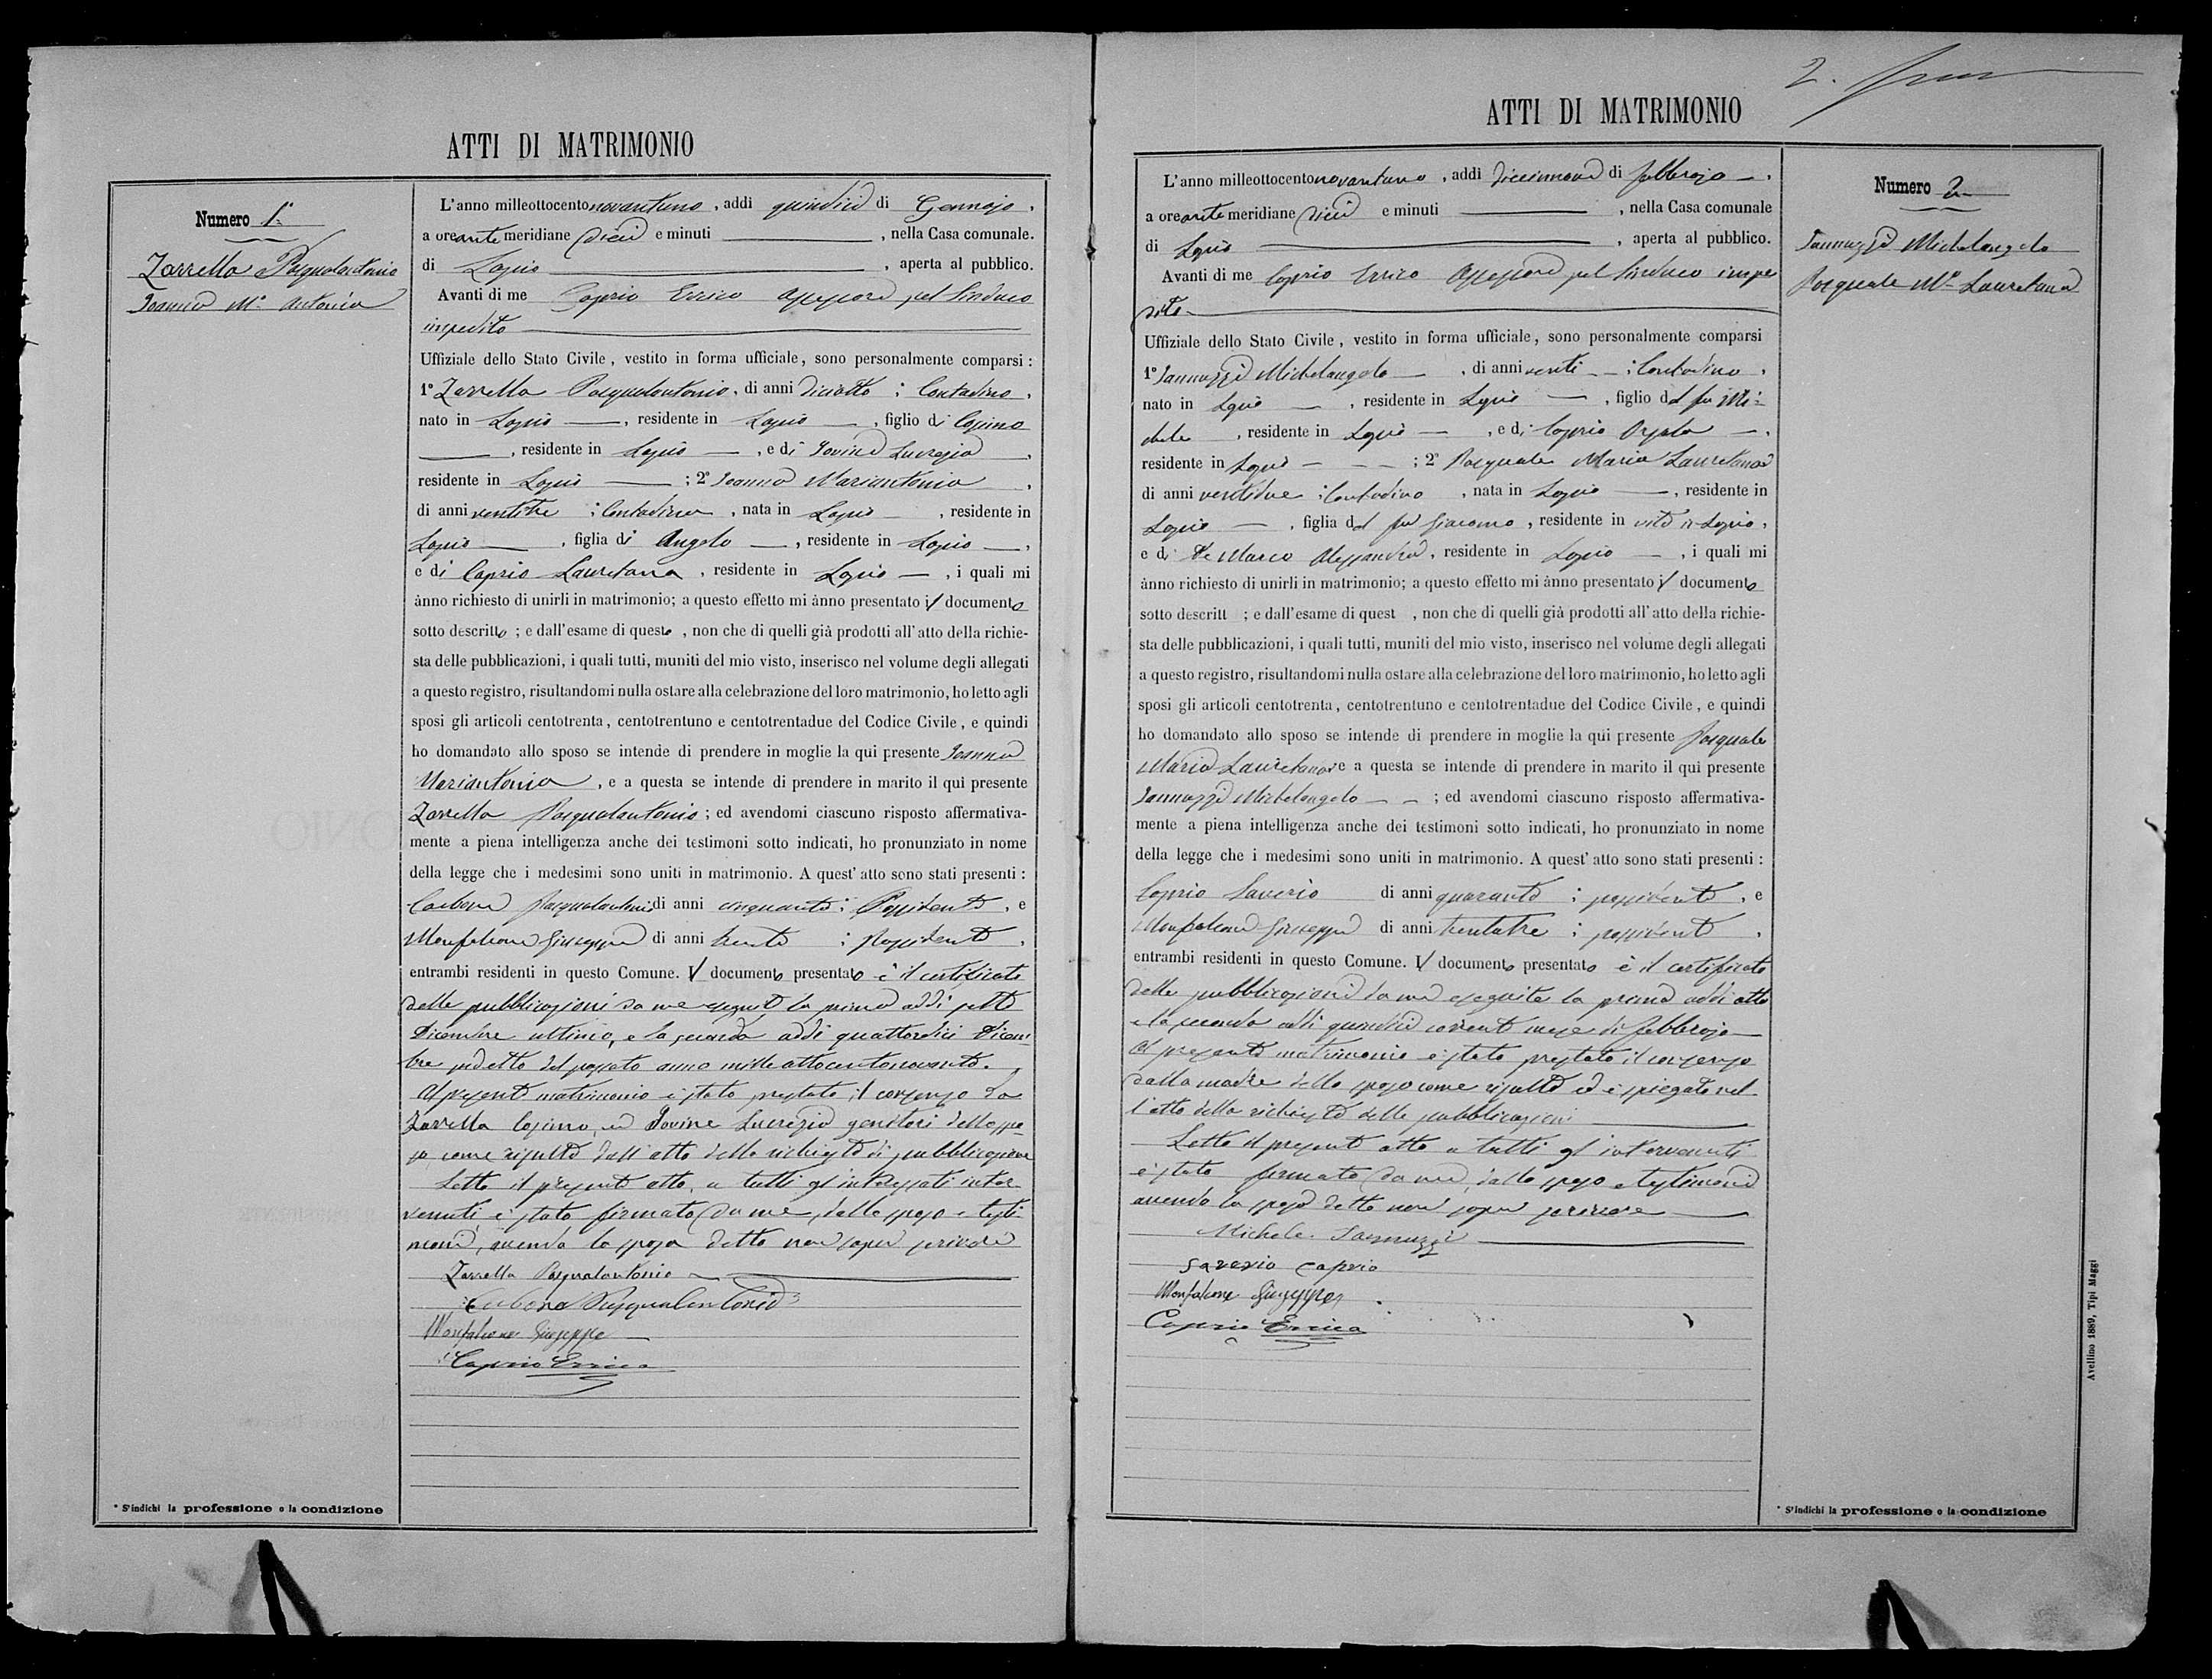 ATTI DI MATRIMONIO
Numero 1°
Zarrella Pasqualantonio
Ioanna M.ª Antonia
L'anno milleottocentonovantuno, addì quindici di Gennajo,
a ore antemeridiane dieci e minuti ——, nella Casa comunale.
di Lapio ——, aperta al pubblico.
Avanti di me Caprio Errico Assessore pel Sindaco
impedito ——
Uffiziale dello Stato Civile, vestito in forma ufficiale, sono personalmente comparsi:
1° Zarrella Pasqualantonio, di anni diciotto; Contadino,
nato in Lapio ——, residente in Lapio ——, figlio di Cosimo
——, residente in Lapio ——, e di Iovine Lucrezia,
residente in Lapio ——; 2° Ioanna Mariantonia,
di anni ventitre; Contadina, nata in Lapio —, residente in
Lapio ——, figlia di Angelo —, residente in Lapio —,
e di Caprio Lauretana, residente in Lapio —, i quali mi
ànno richiesto di unirli in matrimonio; a questo effetto mi ànno presentato il documento
sotto descritto; e dall'esame di questo, non che di quelli già prodotti all'atto della richie-
sta delle pubblicazioni, i quali tutti, muniti del mio visto, inserisco nel volume degli allegati
a questo registro, risultandomi nulla ostare alla celebrazione del loro matrimonio, ho letto agli
sposi gli articoli centotrenta, centotrentuno e centotrentadue del Codice Civile, e quindi
ho domandato allo sposo se intende di prendere in moglie la qui presente Ioanna
Mariantonia, e a questa se intende di prendere in marito il qui presente
Zarrella Pasqualantonio; ed avendomi ciascuno risposto affermativa-
mente a piena intelligenza anche dei testimoni sotto indicati, ho pronunziato in nome
della legge che i medesimi sono uniti in matrimonio. A quest'atto sono stati presenti:
Carbone Pasqualantonio di anni cinquanta; Possidente, e
Monfalcone Giuseppe di anni trenta; Possidente,
entrambi residenti in questo Comune. Il documento presentato è il certificato
delle pubblicazioni da me eseguite la prima addì sette
Dicembre ultimo, e la seconda addì quattordici Dicem
bre pidetto del passato anno milleottocentonovanta.
Al presente matrimonio è stato prestato il consenso da
Zarrella Cosimo, ed Iovine Lucrezia genitori dello spo-
so come risulta dall'atto della richiesta di pubblicazione
Letto il presente atto, a tutti gl'interessati inter
venuti, è stato firmato da me, dallo sposo e testi
moni, avendo la sposa detto non saper scrivere
Zarrella Pasqualantonio
Carbone Pasqualantonio
Monfalcone Giuseppe
Caprio Errico
* S'indichi la professione o la condizione
2.
ATTI DI MATRIMONIO
Numero 2
Iannuzzi Michelangelo
Pasquale M.ª Lauretana
L'anno milleottocentonovantuno, addì diecinnove di febbrajo —,
a ore antemeridiane dieci e minuti ——, nella Casa comunale
di Lapio ——, aperta al pubblico.
Avanti di me Caprio Errico Assessore pel Sindaco impe
dito ——
Uffiziale dello Stato Civile, vestito in forma ufficiale, sono personalmente comparsi
1° Iannuzzi Michelangelo —, di anni venti —; Contadino,
nato in Lapio —, residente in Lapio —, figlio del fu Mi-
chele, residente in Lapio —, e di Caprio Orsola —,
residente in Lapio — ; 2° Pasquale Maria Lauretana
di anni ventidue; Contadina, nata in Lapio —, residente in
Lapio —, figlia del fu Giacomo, residente in vita in Lapio,
e di De Marco Alessandra, residente in Lapio —, i quali mi
ànno richiesto di unirli in matrimonio; a questo effetto mi ànno presentato il documento
sotto descritt ; e dall'esame di quest , non che di quelli già prodotti all'atto della richie-
sta delle pubblicazioni, i quali tutti, muniti del mio visto, inserisco nel volume degli allegati
a questo registro, risultandomi nulla ostare alla celebrazione del loro matrimonio, ho letto agli
sposi gli articoli centotrenta, centotrentuno e centotrentadue del Codice Civile, e quindi
ho domandato allo sposo se intende di prendere in moglie la qui presente Pasquale
Maria Lauretana, e a questa se intende di prendere in marito il qui presente
Iannuzzi Michelangelo — —; ed avendomi ciascuno risposto affermativa-
mente a piena intelligenza anche dei testimoni sotto indicati, ho pronunziato in nome
della legge che i medesimi sono uniti in matrimonio. A quest'atto sono stati presenti:
Caprio Saverio di anni quaranta; possidente, e
Monfalcone Giuseppe di anni trentatre; possidente,
entrambi residenti in questo Comune. Il documento presentato è il certificato
delle pubblicazioni da me eseguite la prima addì otto
e la seconda addì quindici corrente mese di febbrajo —
Al presente matrimonio è stato prestato il consenso
dalla madre dello sposo come risulta ed è spiegato nel
l'atto della richiesta delle pubblicazioni ——
Letto il presente atto a tutti gl'intervenuti
è stato firmato da me, dallo sposo e testimoni
avendo la sposa detto non saper scrivere ——
Michele Iannuzzi
Saverio Caprio
Monfalcone Giuseppe
Caprio Errico
* S'indichi la professione o la condizione
Avellino 1889, Tipi Maggi